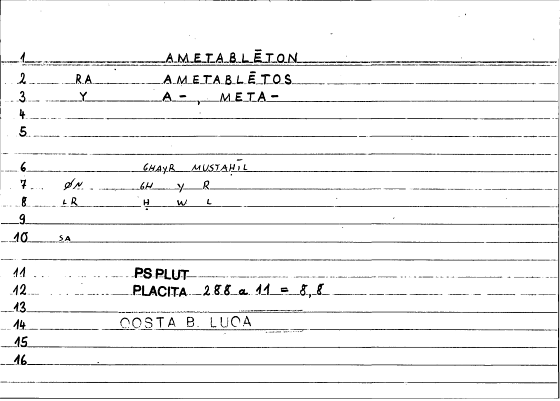 1 AMETABLĒTON
2 RA AMETABLĒTOS
3 Y A-, META-
4
5
6 GHAYR MUSTAḤĪL
7 ØN GH Y R
8 LR Ḥ W L
9
10 SA
11 PS PLUT
12 PLACITA 288 a 11 = 8,8
13
14 COSTA B. LUCA
15
16